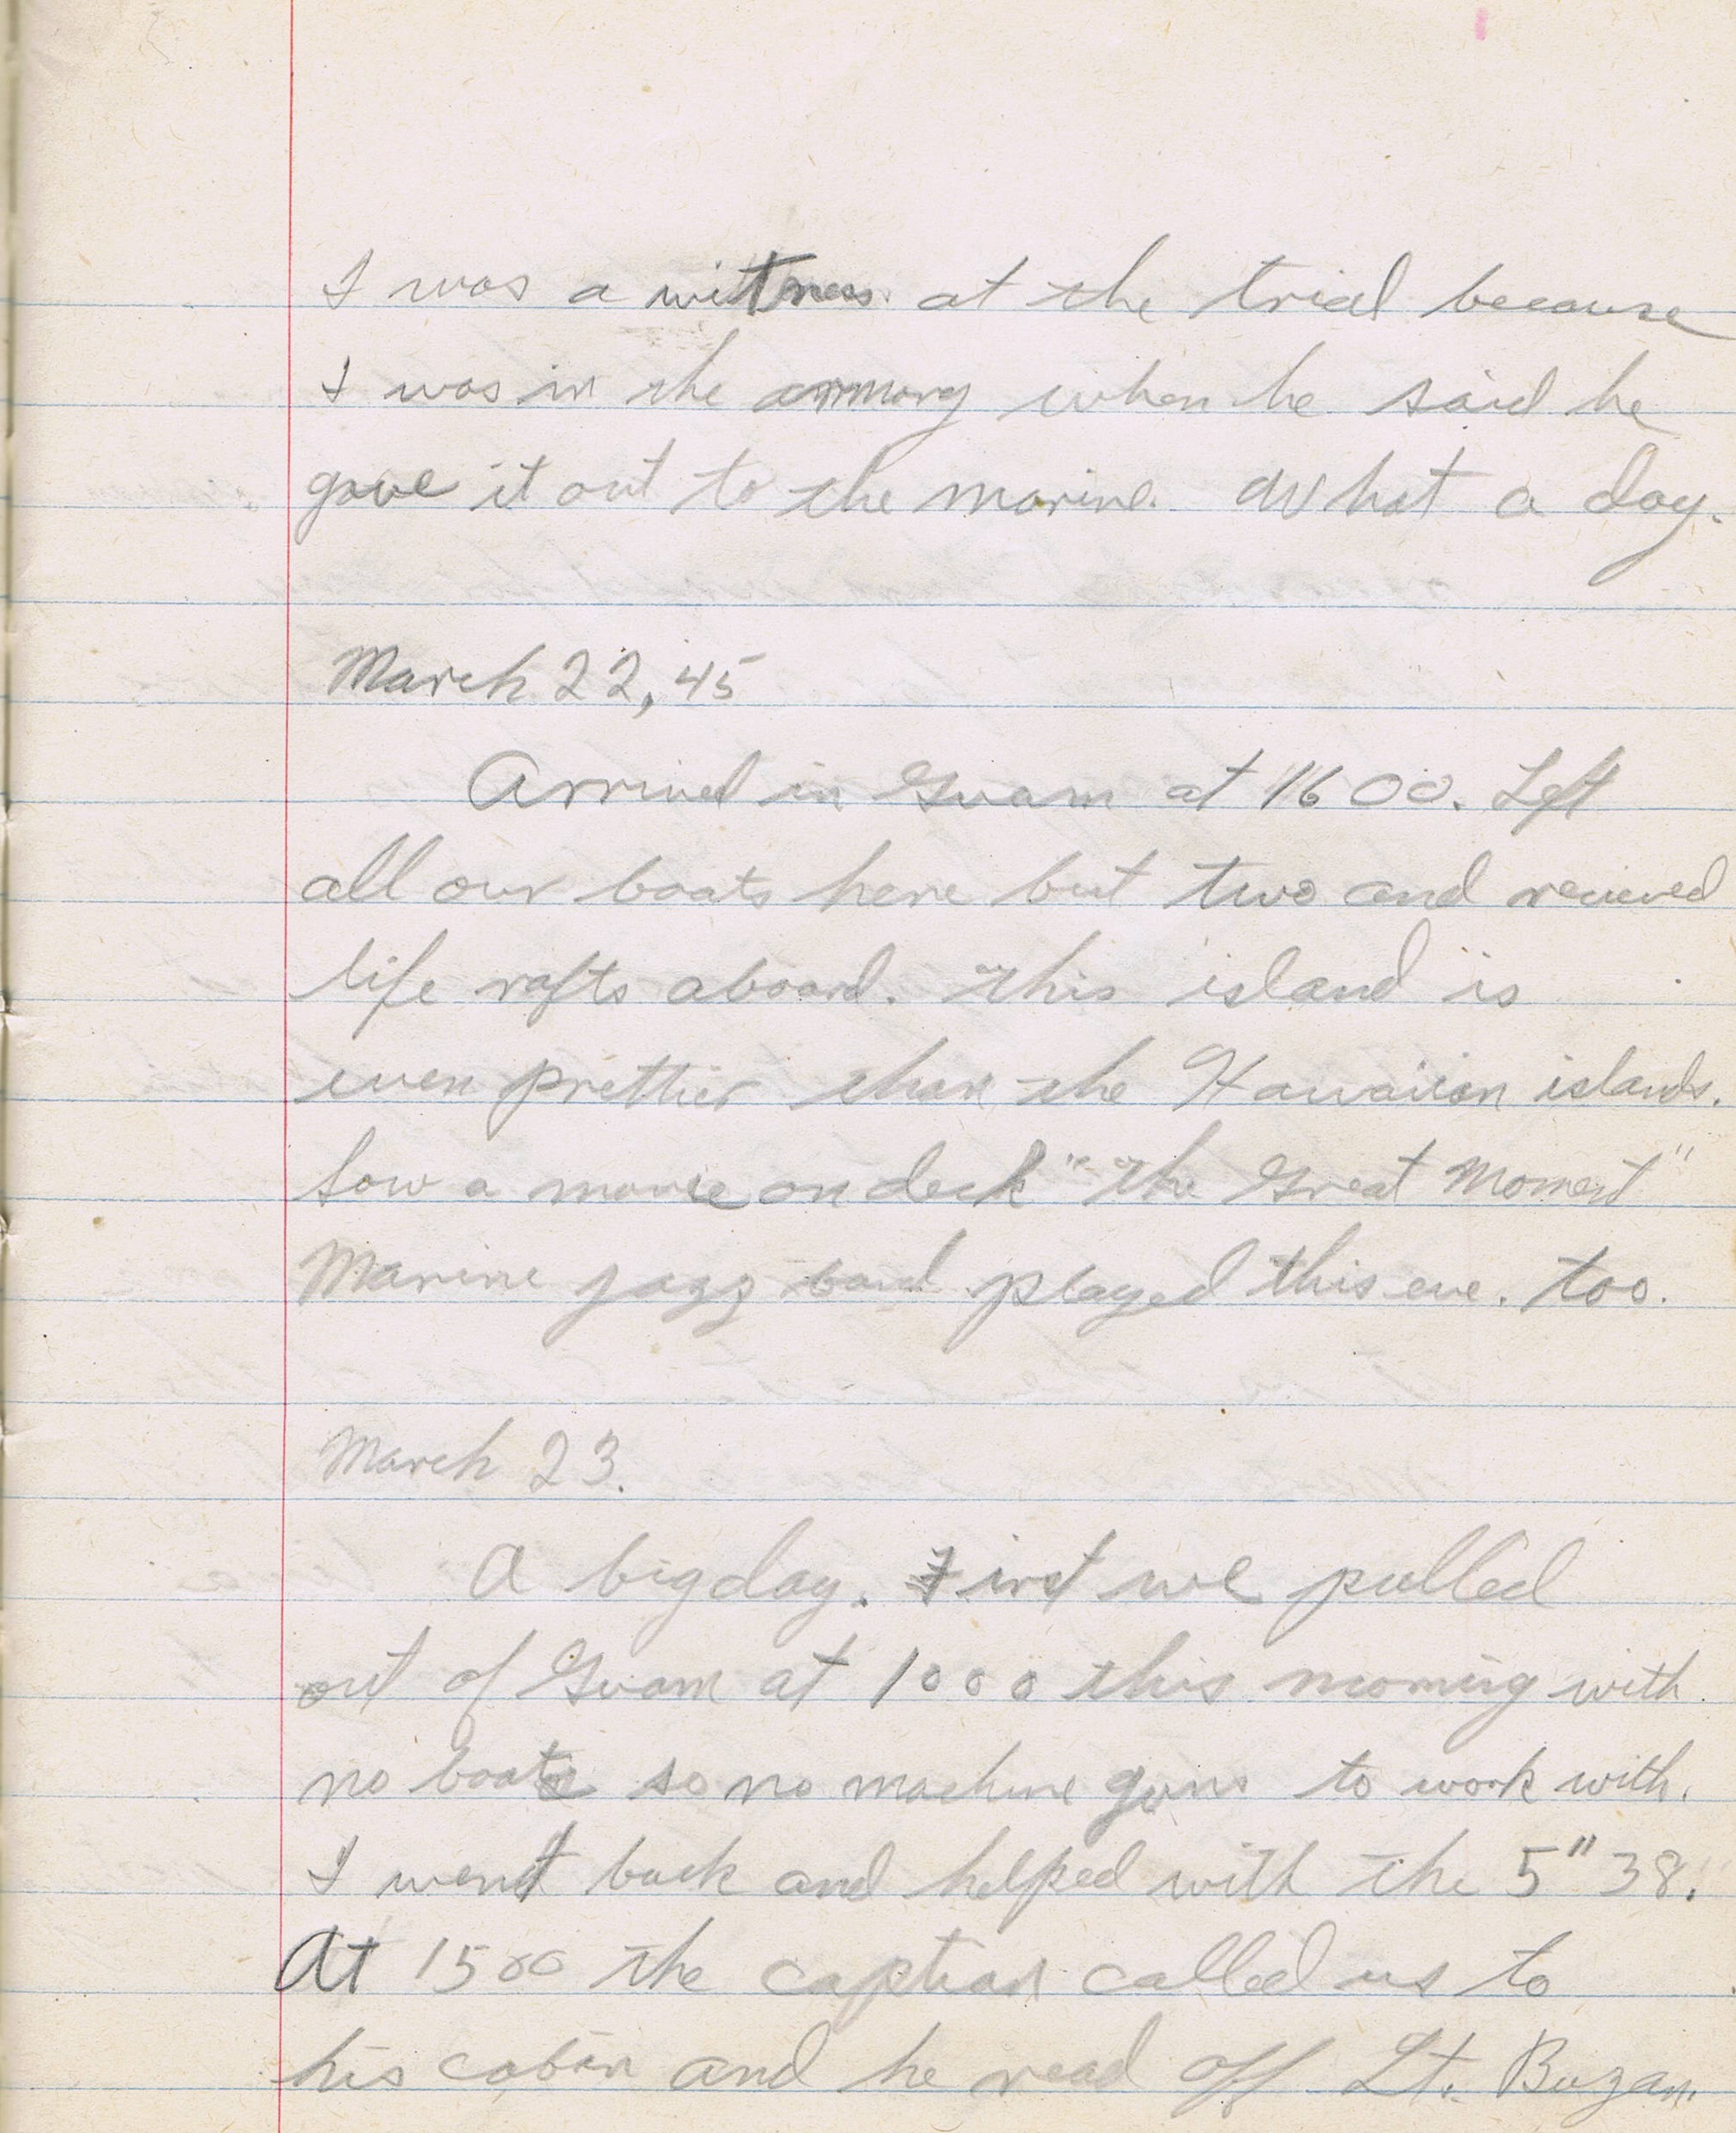 I was a witness at the trial because
I was in the armory when he said he
gave it out to the marine. What a day.
March 22, 45
Arrived in Guam at 1600. Left
all our boats here but two and recieved
life rafts aboard. This island is
even prettier than the Hawaiian islands.
Saw a movie on deck "The Great Moment"
Marine jazz band played this eve. too.
March 23.
A big day. First we pulled
out of Guam at 1000 this morning with
no boats so no machine guns to work with.
I went back and helped with the 5" 38.
At 1500 the captian called us to
his cabin and he read off Lt. Buzan.